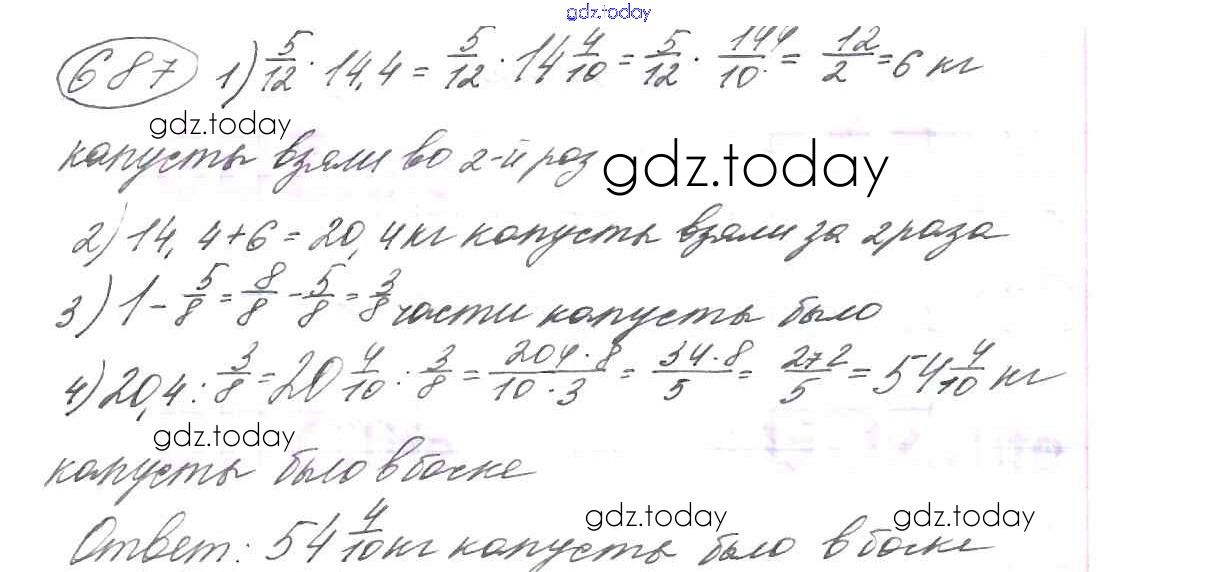 gdz.today
687 1) 5/12 · 14,4 = 5/12 · 14 4/10 = 5/12 · 144/10 = 12/2 = 6 кг
gdz.today
капусты взяли во 2-й раз gdz.today
2) 14,4+6 = 20,4 кг капусты взяли за 2 раза
3) 1 - 5/8 = 8/8 - 5/8 = 3/8 части капусты было
4) 20,4 : 3/8 = 20 4/10 : 3/8 = 204·8/10·3 = 34·8/5 = 272/5 = 54 4/10 кг
gdz.today
капусты было в бочке
gdz.today gdz.today
Ответ: 54 4/10 кг капусты было в бочке